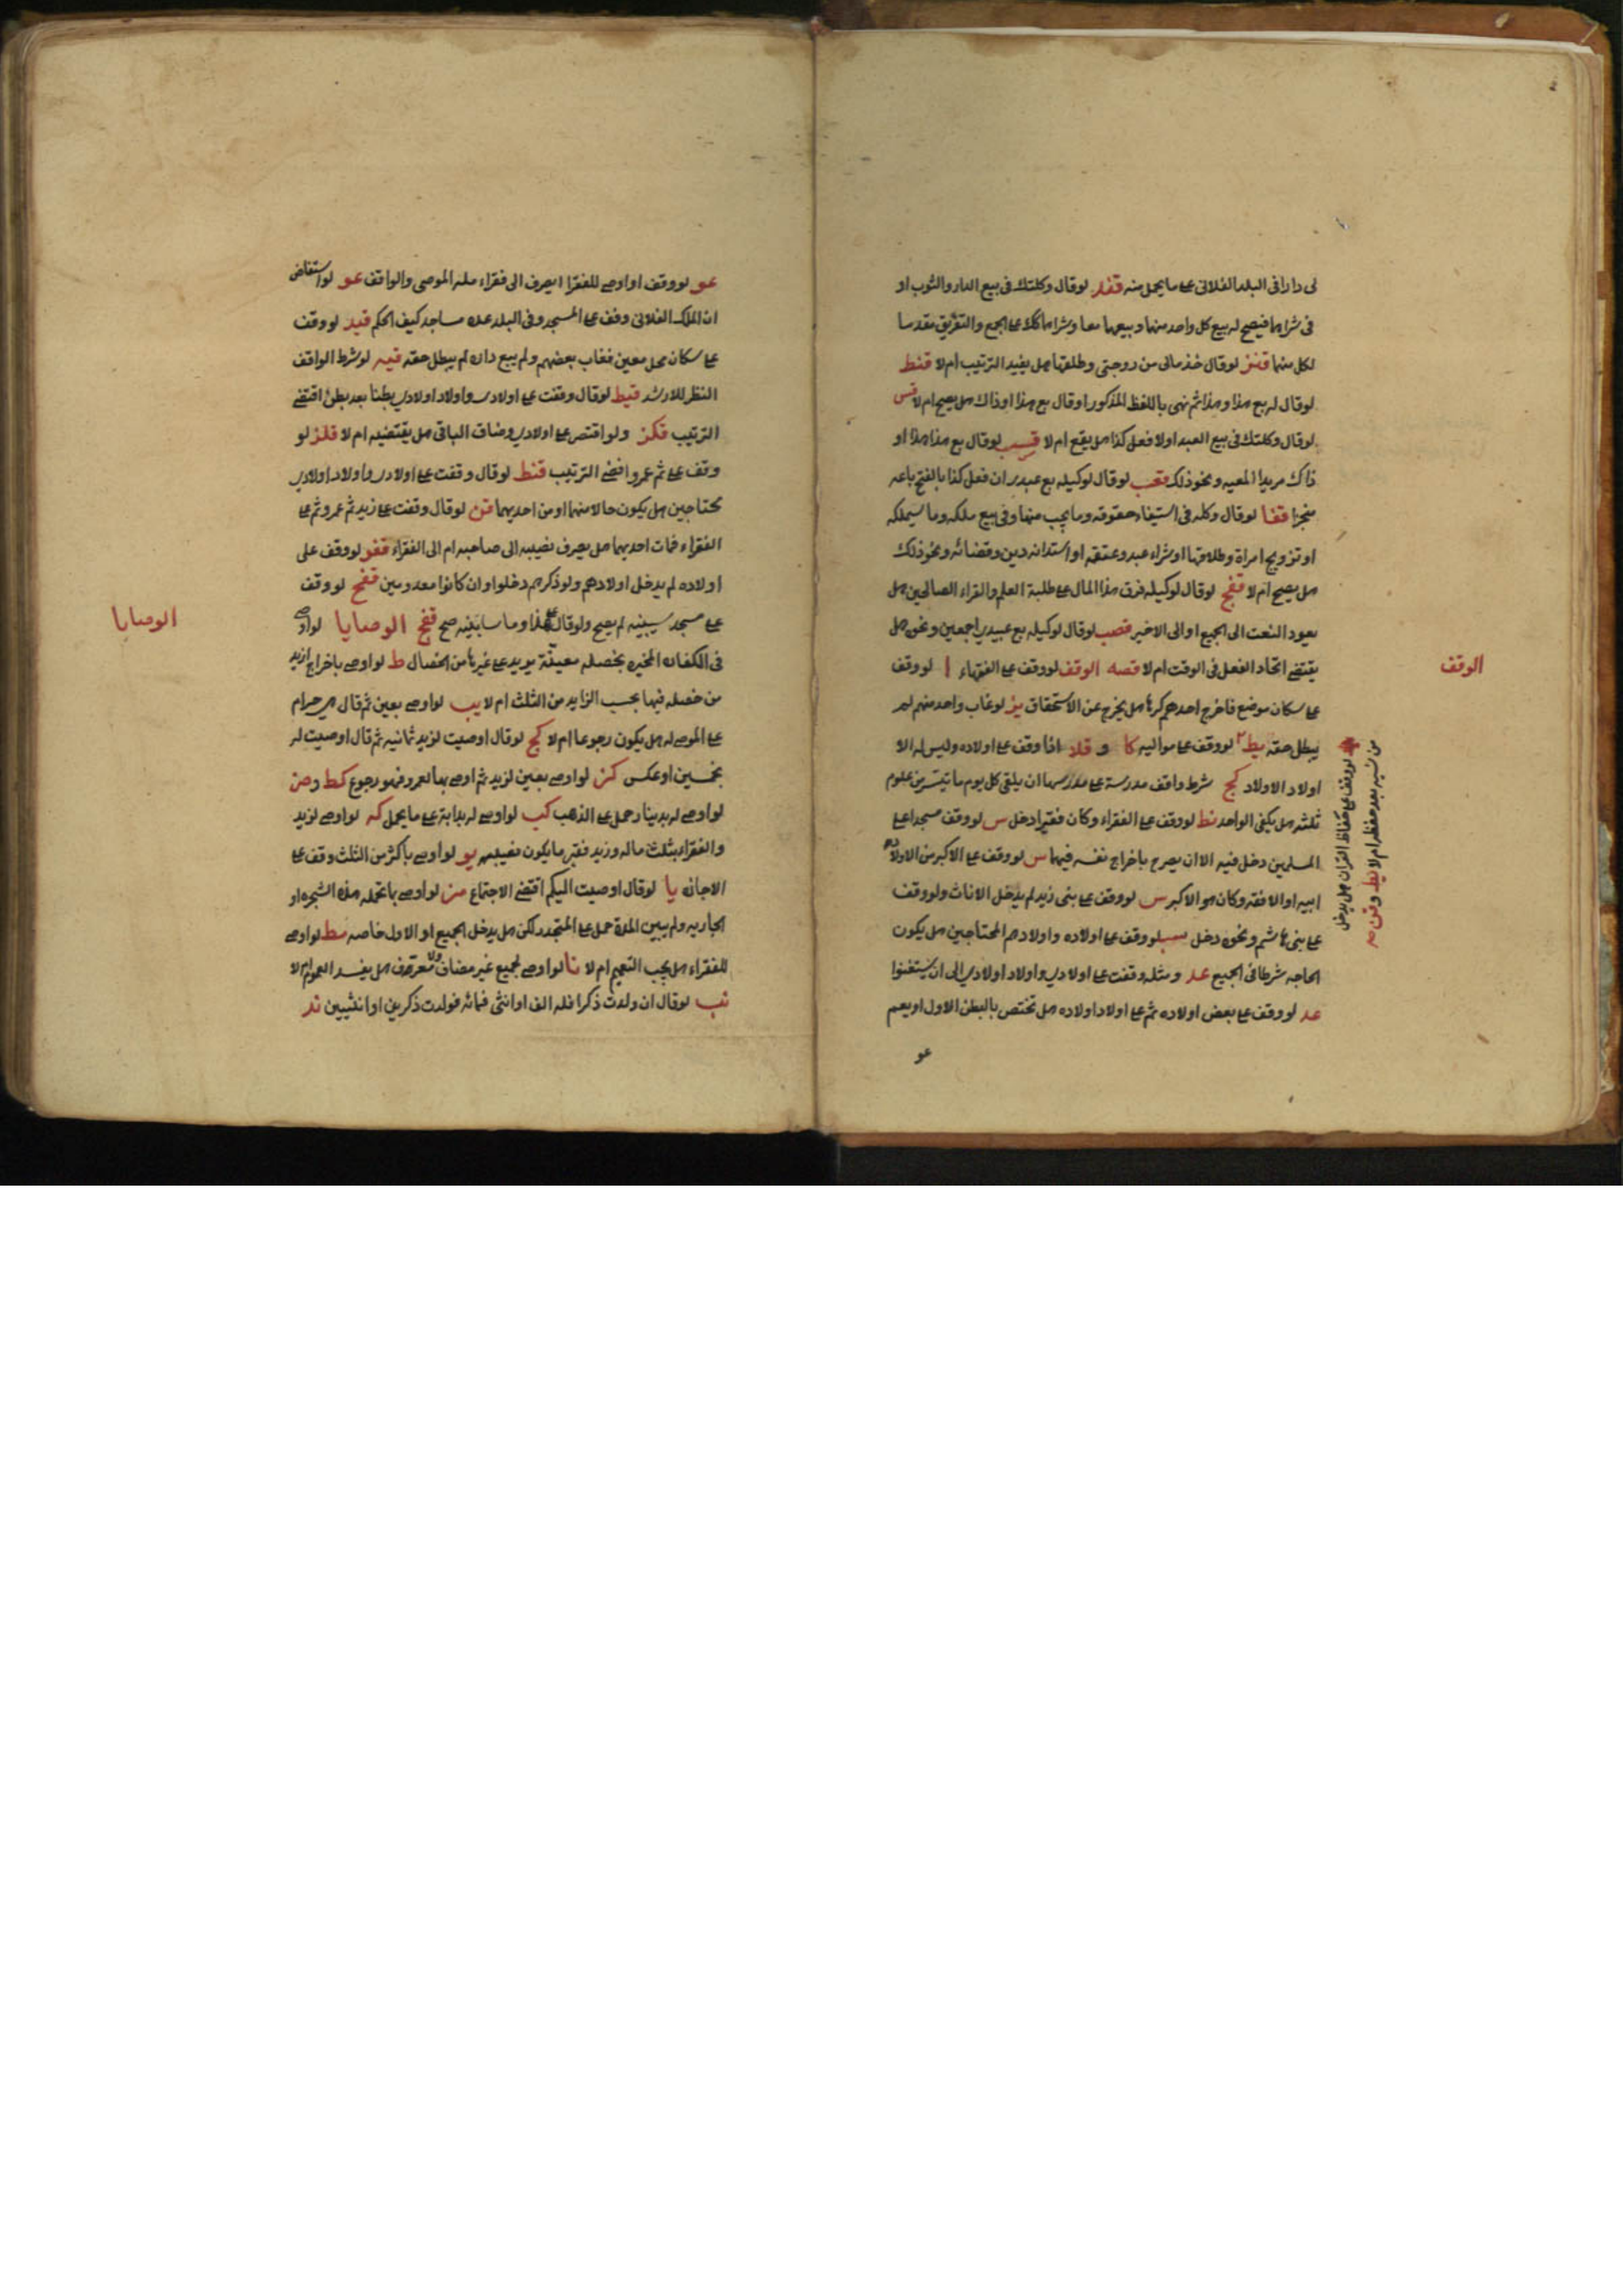 لى دارا فى البلد الفلانى على ما يحمل منه قفد لو قال وكلتك فى بيع الدار والثوب او
فى شراهما فيصح له بيع كل واحد منهما وبيعهما معا وشراهما كك على الجمع والتفريق مقدما
لكل منهما قنز لو قال خذ مالى من زوجتى وطلقها هل يفيد الترتيب ام لا قنط
لو قال له بع هذا وهذا ثم نهى باللفظ المذكور او قال بع هذا او ذاك هل يصح ام لا قس
لو قال وكلتك فى بيع العبد او لا فعل كذا هل يقع ام لا قسب لو قال بع هذا هذا او
ذاك مريدا المعيه ونحو ذلك قعب لو قال لوكيله بع عبدى ان فعل كذا بالفتح باعه
منجزا قفا لو قال وكله فى استيفاء حقوقه وما يجب منها وفى بيع ملكه وما سيملكه
او تزويج امراة وطلاقها او شراء عبد وعتقه او استدانه دين وقضائه ونحو ذلك
هل يصح ام لا قفج لو قال لوكيله فرق هذا المال على طلبة العلم والقراء الصالحين هل
يعود النعت الى الجميع او الى الاخير قصب لو قال لوكيله بع عبيدى اجمعين ونحوه هل
يقتضى اتحاد الفعل فى الوقت ام لا قصه الوقف لو وقف على الفقهاء ا لو وقف
على سكان موضع فاخرج احدهم كرها هل يخرج عن الاستحقاق يز لو غاب واحد منهم لم
يبطل حقه يط لو وقف على مواليه كا و قلا اذا وقف على اولاده وليس له الا
اولاد الاولاد كج شرط واقف مدرسة على مدرسها ان يلقى كل يوم ما تيسر من علوم
ثلثه هل يكفى الواحد نط لو وقف على الفقراء وكان فقيرا دخل س لو وقف مسجدا على
المسلمين دخل فيه الا ان يصرح باخراج نفسه فيهما س لو وقف على الاكبر من اولاد
ابيه او الافقه وكان هو الاكبر س لو وقف على بنى زيد لم يدخل الاناث ولو وقف
على بنى هاشم ونحوه دخل سب لو وقف على اولاده واولادهم المحتاجين هل يكون
الحاجه شرطا فى الجميع عد ومثله وقفت على اولادى واولاد اولادى الى ان يستغنوا
عد لو وقف على بعض اولاده ثم على اولاد اولاده هل تختص بالبطن الاول او يعم
عو
الوقف
لو وقف على حفاظ القران هل يدخل
من نسيه بعد حفظه ام لا يط وقن صه
عو لو وقف او اوصى للفقرا ا يصرف الى فقراء بلد الموصى والواقف عو لو استفاض
ان الملك الفلانى وقف على المسجد وفى البلد عده مساجد كيف الحكم قيد لو وقف
على سكان محل معين فغاب بعضهم ولم يبع داره لم يبطل حقه قيه لو شرط الواقف
النظر للارشد قيط لو قال وقفت على اولادى واولاد اولادى بطنا بعد بطن اقتضى
الترتيب قكز ولو اقتصر على اولادى وضاف الباقى هل يقتضيه ام لا قلز لو
وقف على ثم عمرو اقتضى الترتيب قنط لو قال وقفت على اولادى واولاد اولادى
محتاجين هل يكون حالا منهما او من احديهما قن لو قال وقفت على زيد ثم عمرو ثم على
الفقراء فمات احديهما هل يصرف نصيبه الى صاحبه ام الى الفقراء قفو لو وقف على
اولاده لم يدخل اولادهم ولو ذكرهم دخلوا وان كانوا معدومين قفح لو وقف
على مسجد سيبنيه لم يصح ولو قال على هذا وما سابنيه صح قفح الوصايا لو اوصى
فى الكفاره المخيره بخصله معينة يزيد على غيرها من الخصال ط لو اوصى باخراج ازيد
من خصله فيها بحسب الزايد من الثلث ام لا يب لو اوصى بعين ثم قال هى حرام
على الموصى له هل يكون رجوعا ام لا كج لو قال اوصيت لزيد ثمانيه ثم قال اوصيت له
بخمسين او عكس كز لو اوصى بعين لزيد ثم اوصى بها لعمرو فهو رجوع كط وصن
لو اوصى له بدينار حمل على الذهب كب لو اوصى له بدابة على ما يحمل كه لو اوصى لزيد
والفقراء بثلث ماله وزيد فقير ما يكون نصيبه يو لو اوصى باكثر من الثلث وقف على
الاجازه يا لو قال اوصيت اليكم اقتضى الاجتماع مز لو اوصى بما تحمله هذه الشجره او
الجاريه ولم يبين المدة حمل على المتجدد لكن هل يدخل الجميع او الاول خاصه مط لو اوصى
للفقراء هل يجب التعميم ام لا نا لو اوصى لجميع غير مضاف ولا معرف هل يفيد العموم ام لا
نب لو قال ان ولدت ذكرا فله الف او انثى فمائه فولدت ذكرين او انثيين ند
الوصايا